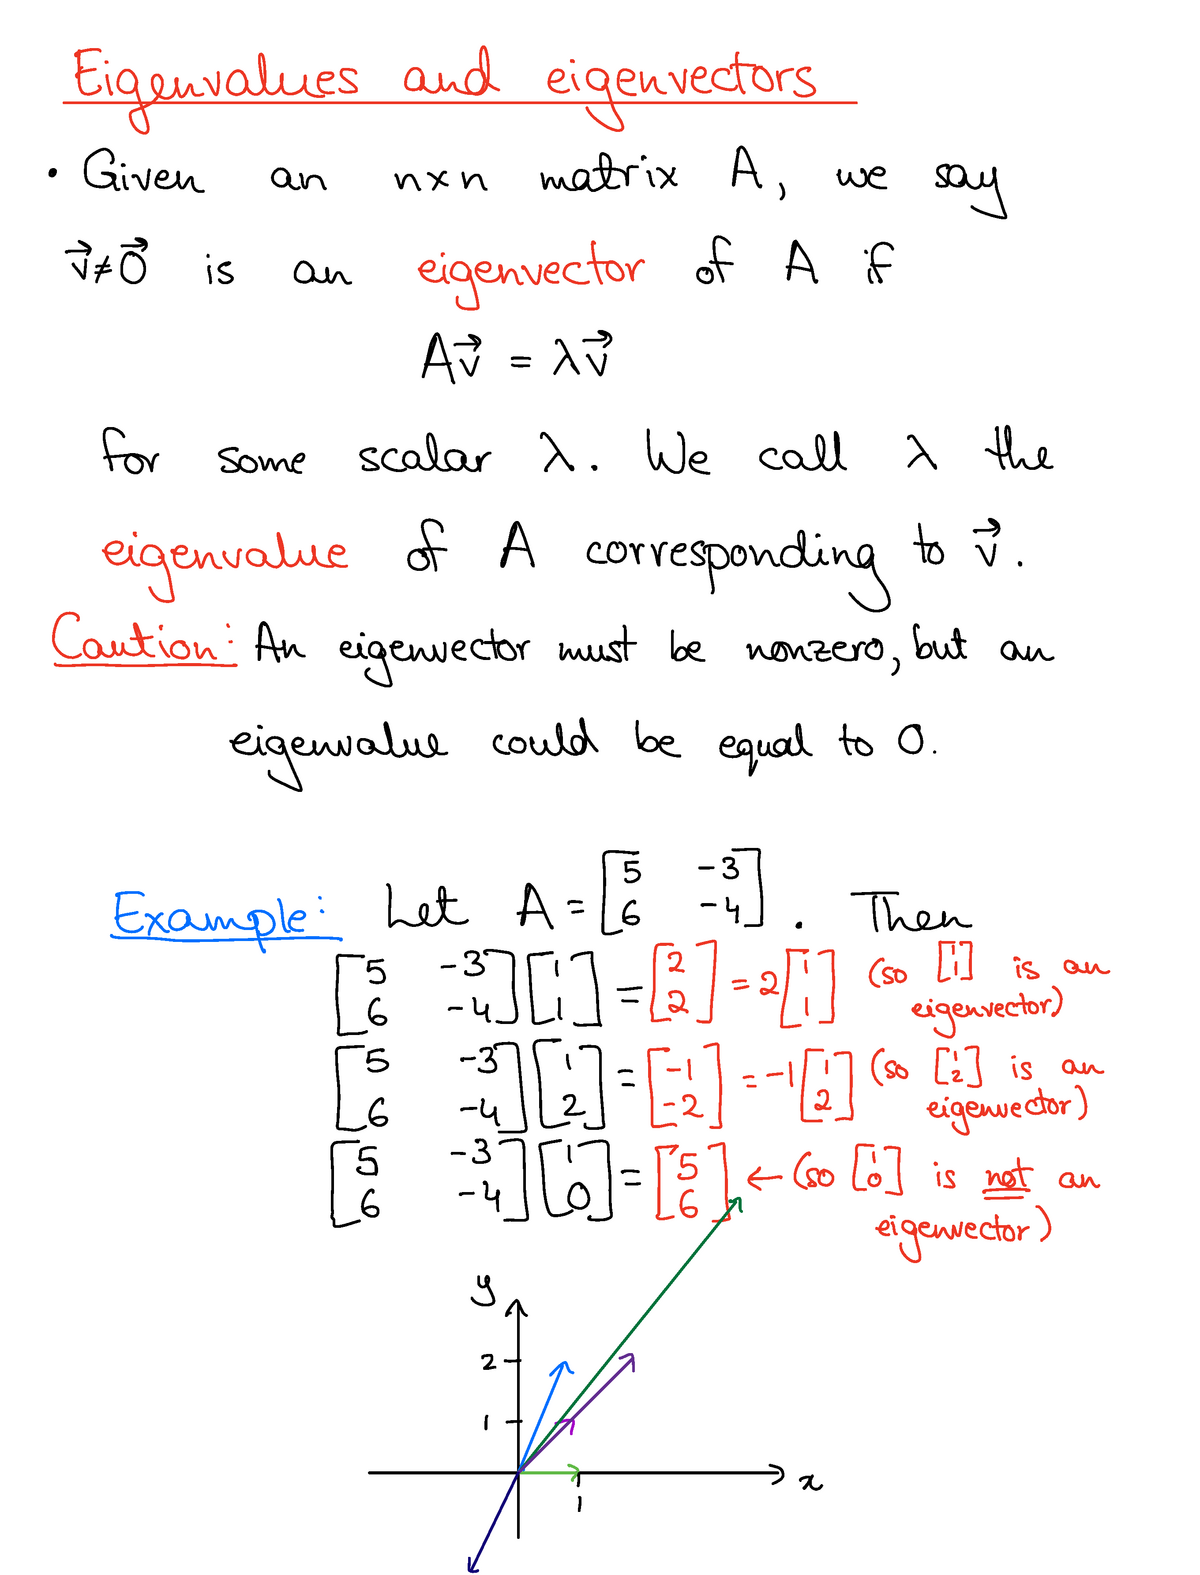 Eigenvalues and eigenvectors
• Given an n×n matrix A, we say
v⃗≠0⃗ is an eigenvector of A if
Av⃗ = λv⃗
for some scalar λ. We call λ the
eigenvalue of A corresponding to v⃗.
Caution: An eigenvector must be nonzero, but an
eigenvalue could be equal to 0.
Example: Let A = [5 -3; 6 -4]. Then
[5 -3; 6 -4][1; 1] = [2; 2] = 2[1; 1] (so [1; 1] is an
eigenvector)
[5 -3; 6 -4][1; 2] = [-1; -2] = -1[1; 2] (so [1; 2] is an
eigenvector)
[5 -3; 6 -4][1; 0] = [5; 6] ← (so [1; 0] is not an
eigenvector)
y
2
1
x
1